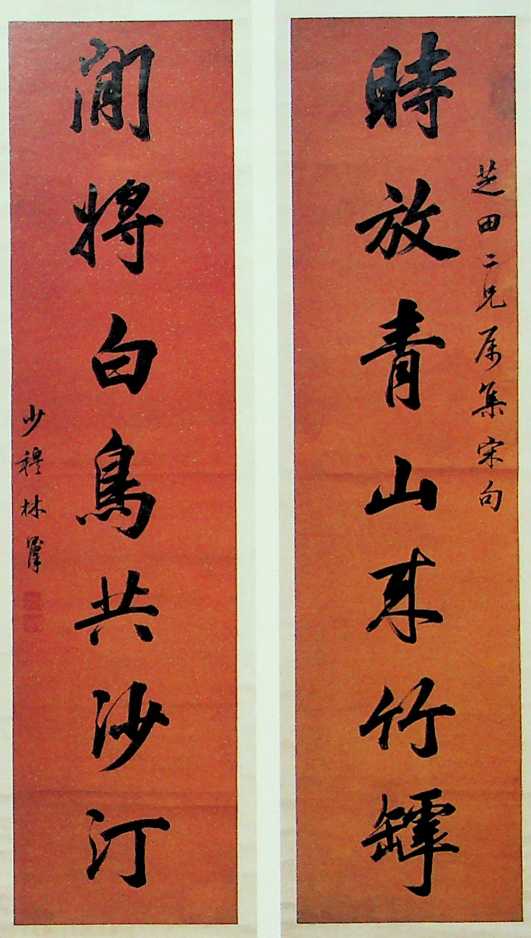 芝田二兄属集宋句
時放青山来竹罅
閒將白鳥共沙汀
少穆林則徐